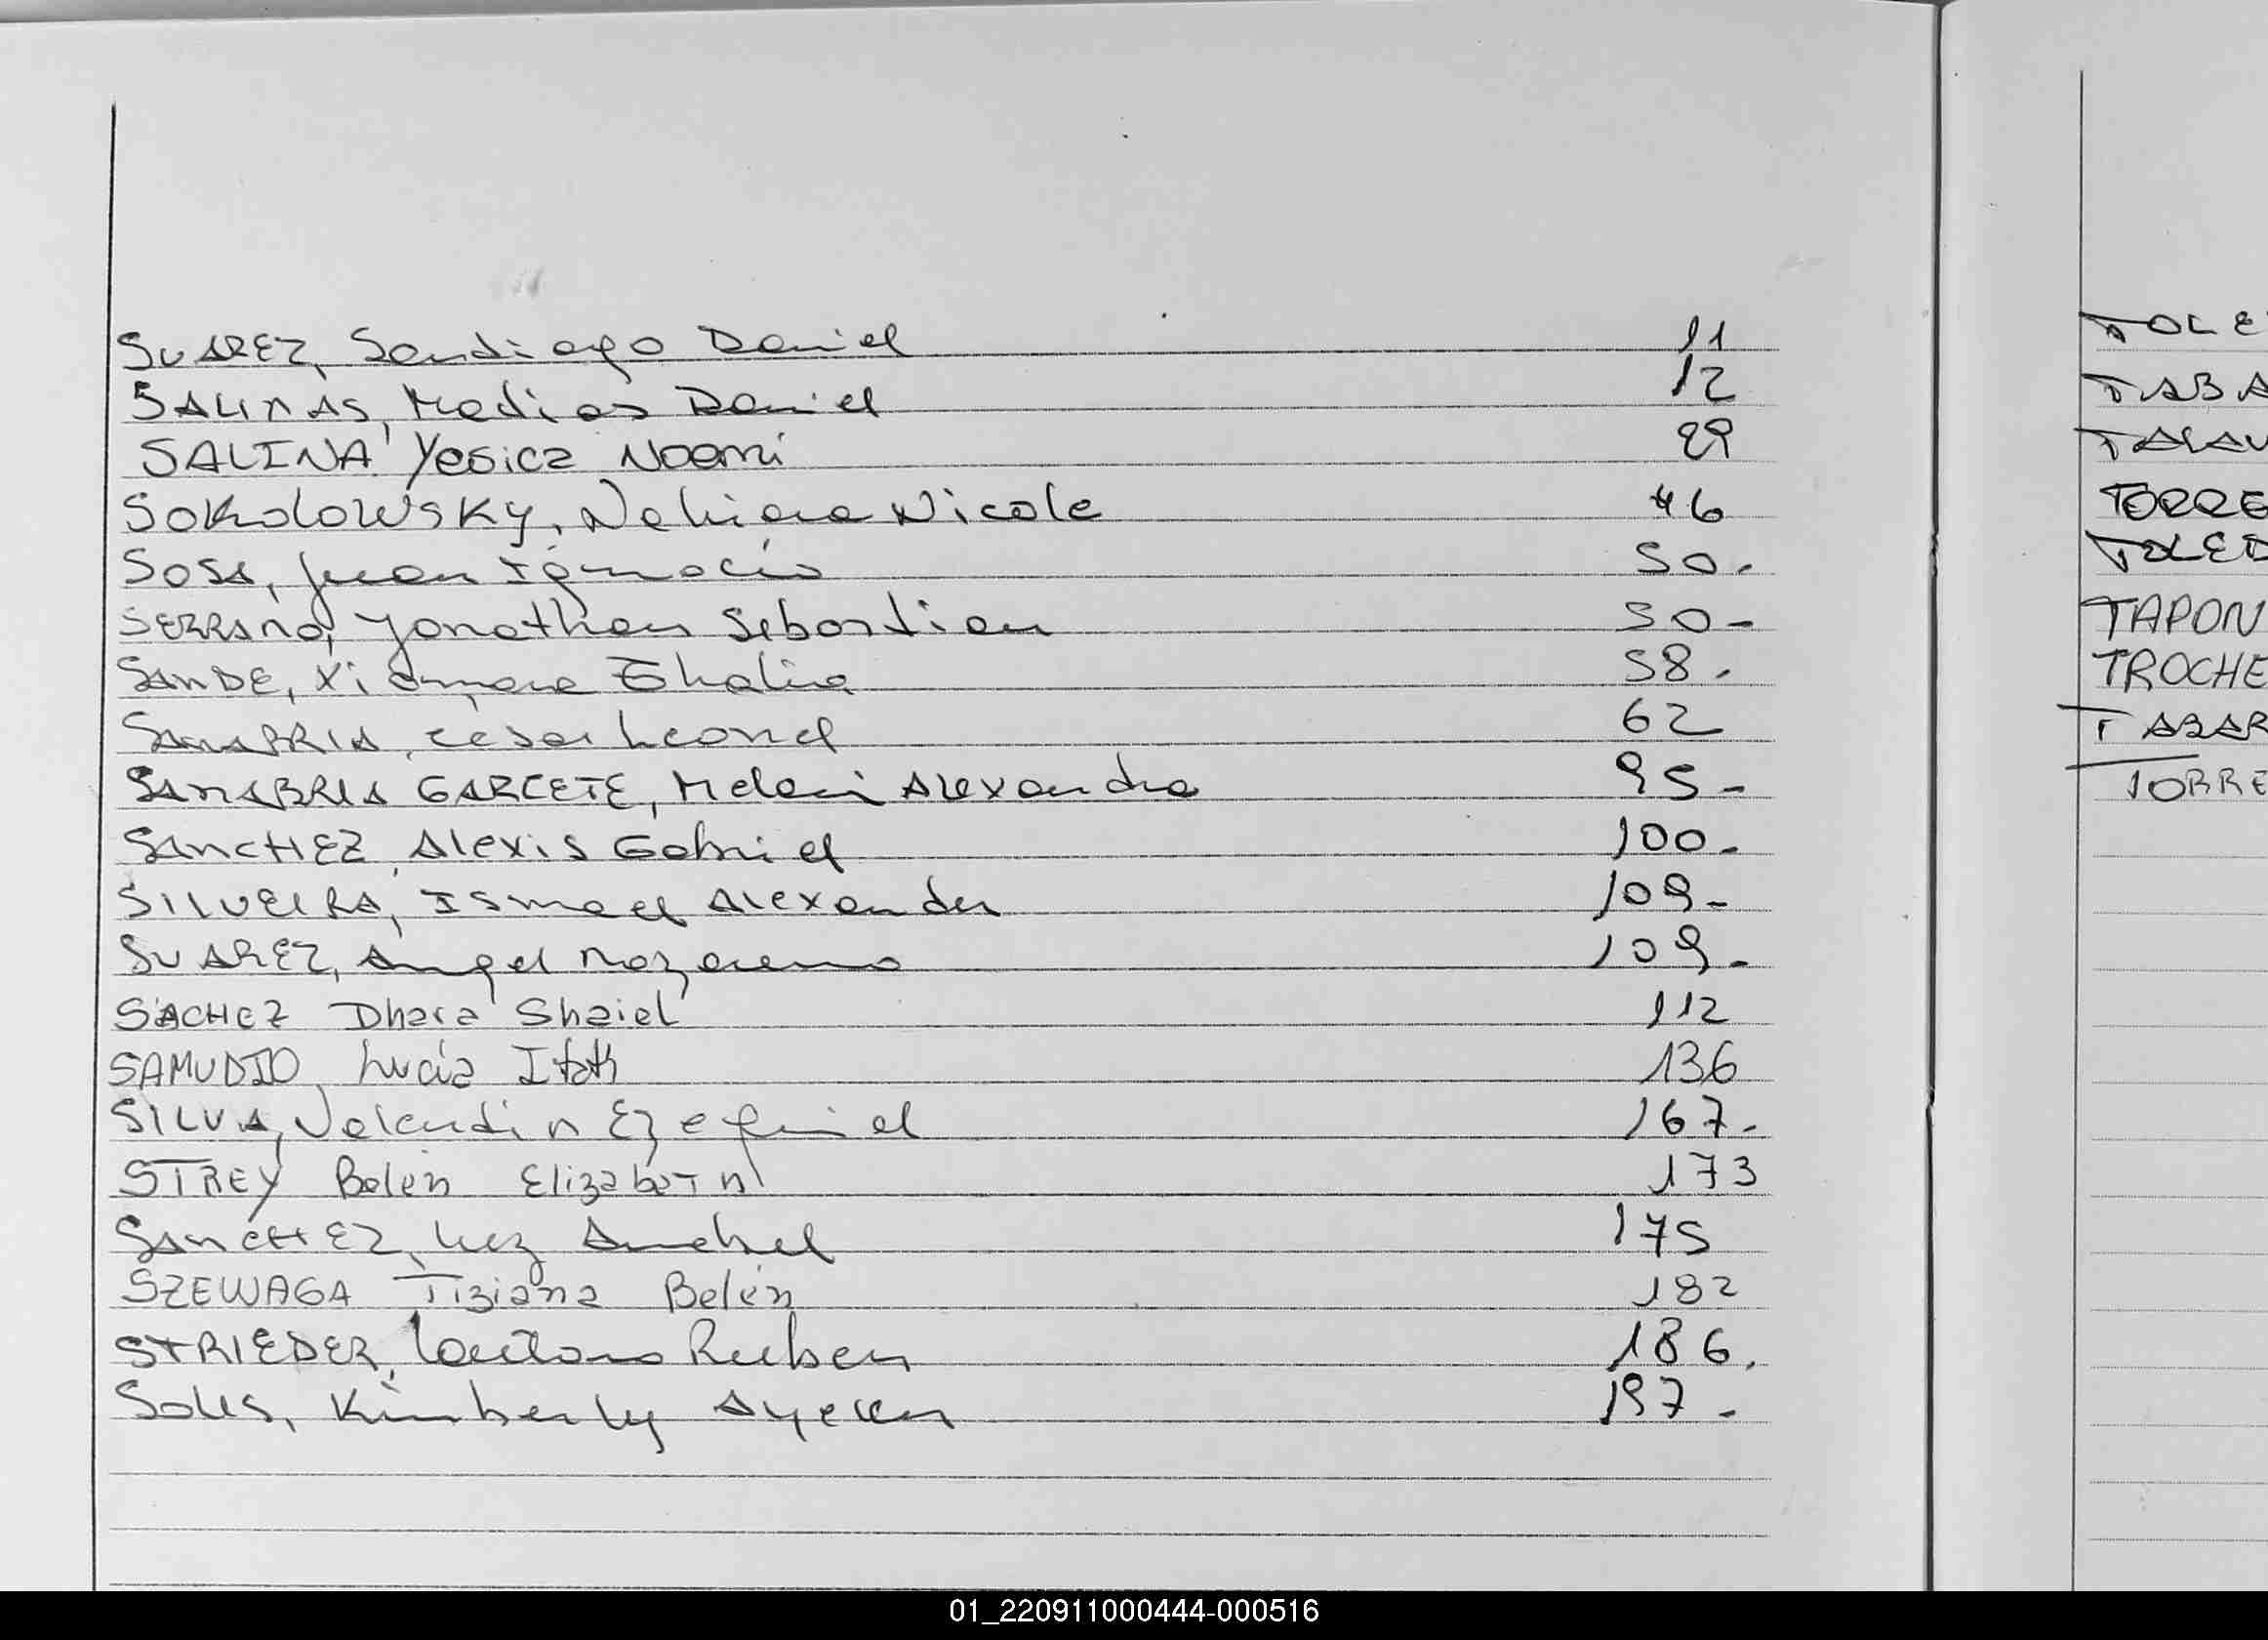 SUAREZ, Santiago Daniel 11
SALINAS, Matias Daniel 12
SALINA, Yesica Noemi 29
SOKOLOWSKY, Nahiara Nicole 46
SOSA, Juan Ignacio 50.
SERRANO, Yonathan Sebastian 50-
SANDE, Xiomara Thalia 58.
SANABRIA, Cesar Leonel 62
SANABRIA GARCETE, Melani Alexandra 95-
SANCHEZ, Alexis Gabriel 100-
SILVEIRA, Ismael Alexander 109-
SUAREZ, Angel Nazareno 109-
SACHEZ Dhara Shaiel 112
SAMUDIO, Lucia Itatí 136
SILVA, Valentin Ezequiel 167-
STREY Belén Elizabeth 173
SANCHEZ, Luz 175
SZEWAGA Tiziana Belén 182
STRIEDER, Lautaro Ruben 186.
SOLIS, Kimberly Ayelen 197-
TOLE
TABA
TALAV
TORRE
TOLED
TAPON
TROCHE
TABAR
TORRE
01_220911000444-000516